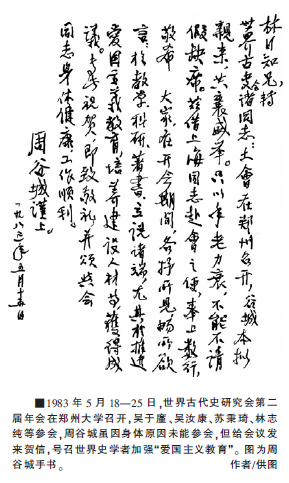 林日知兄,转
世界古史诸同志:大会在郑州召开,谷城本拟
亲来,共襄盛举。只以年老力衰,不能不请
假缺席。兹借上海同志赴会之便,奉上数行,
敬希 大家在开会期间,各抒所见,畅所欲
言;于教学科研、著书立说诸端,尤其于推进
爱国主义教育,培养建设人材等,获得成
议。专此祝贺,即致敬礼,并颂与会
同志身体健康,工作顺利。
周谷城谨上。
一九八三年五月十五日
■1983年5月18—25日,世界古代史研究会第二
届年会在郑州大学召开,吴于廑、吴汝康、苏秉琦、林志
纯等参会,周谷城虽因身体原因未能参会,但给会议发
来贺信,号召世界史学者加强“爱国主义教育”。图为周
谷城手书。 作者/供图